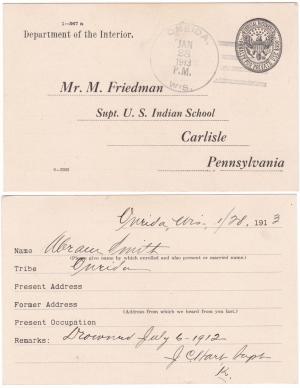 1—967 a
Department of the Interior.
ONEIDA,
JAN
28
1913
P.M.
WIS.
Mr. M. Friedman
Supt. U. S. Indian School
Carlisle
Pennsylvania
Oneida, Wis., 1/28, 1913
Name Abram Smith
(Please give name by which enrolled and also present or married name.)
Tribe Oneida
Present Address
Former Address
(Address from which we heard from you last.)
Present Occupation
Remarks: Drowned July 6-1912
J C Hart Supt
K.